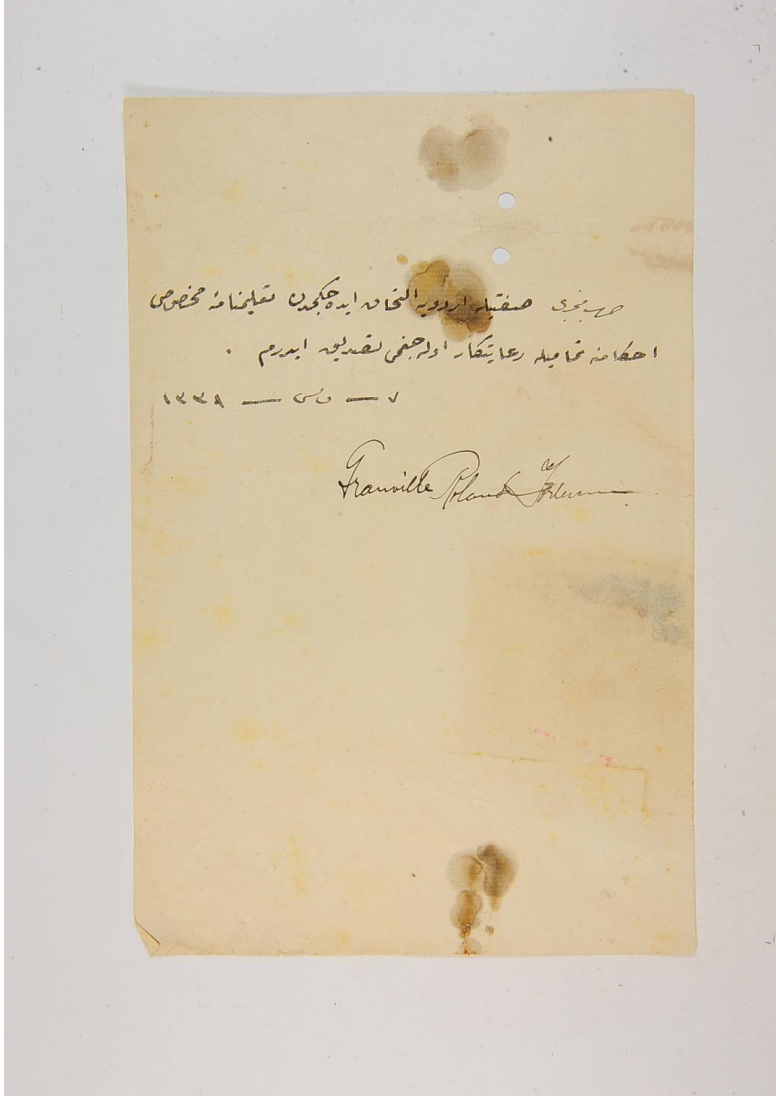 حرب مخبرى صفتيله اردويه التحاق ايده جكمدن تعليمنامۀ مخصوص
احكامنه تماميله رعايتكار اوله جغمى تصديق ايدرم .
٧ — مارس — ١٣٣٨
Granville Roland Fortescue